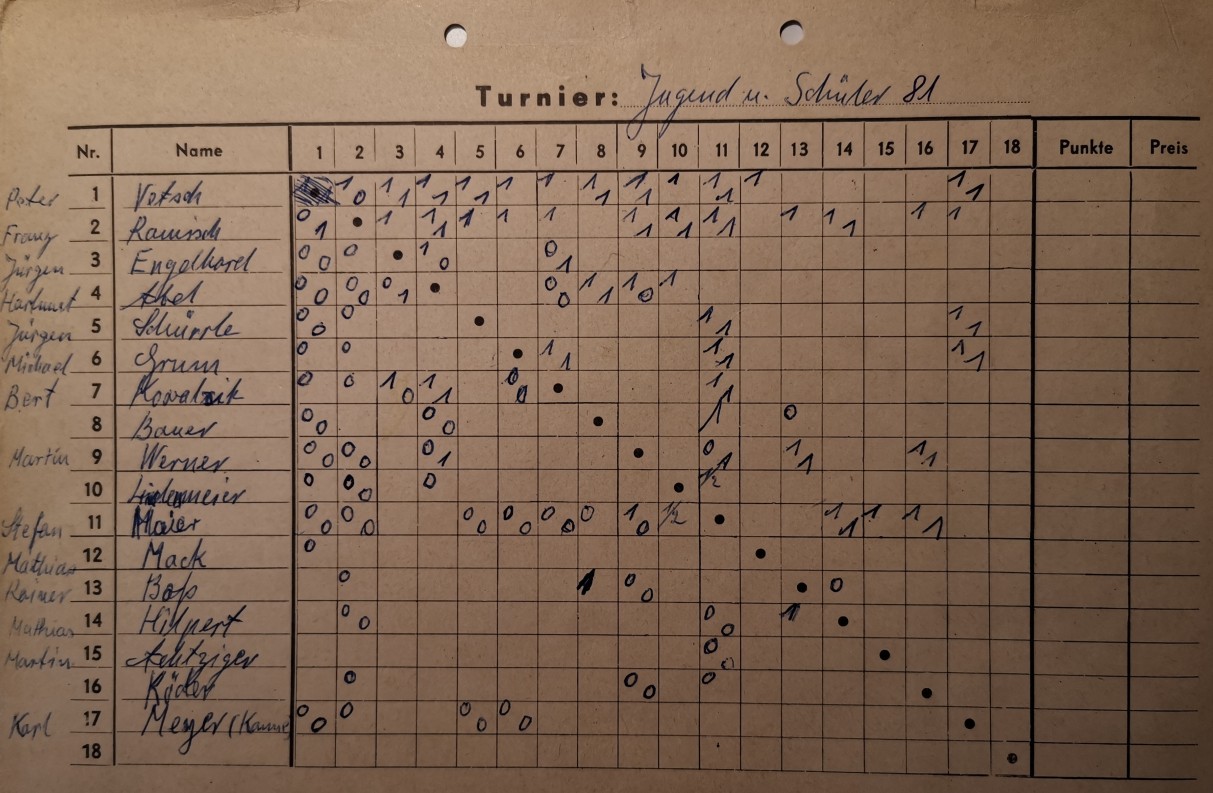 Turnier: Jugend u. Schüler 81
Nr. Name 1 2 3 4 5 6 7 8 9 10 11 12 13 14 15 16 17 18 Punkte Preis
Peter 1 Votsch 1 1 0 1 1 1 1 1 1 1 1 1 1 1 1 1 1 1 1 1
Franz 2 Ramisch 0 1 1 1 1 1 1 1 1 1 1 1 1 1 1 1 1 1 1
Jürgen 3 Engelhard 0 0 0 1 0 0 1
Hartmut 4 Abel 0 0 0 0 0 1 0 0 1 1 1 0 1
Jürgen 5 Schürrle 0 0 0 1 1 1 1
Michael 6 Grum 0 0 1 1 1 1 1 1
Bert 7 0 0 1 0 1 1 0 0 1 1
8 Bauer 0 0 0 0 1 0
Martin 9 Werner 0 0 0 0 0 1 0 1 1 1 1 1
10 Lindenmeier 0 0 0 0 ½
Stefan 11 Maier 0 0 0 0 0 0 0 0 0 0 0 1 0 ½ 1 1 1 1 1
Mathias 12 Mack 0
Rainer 13 Boß 0 1 0 0 0
Mathias 14 Hilpert 0 0 0 0 1
Martin 15 Achtziger 0 0
16 Röder 0 0 0 0
Karl 17 0 0 0 0 0 0 0
18